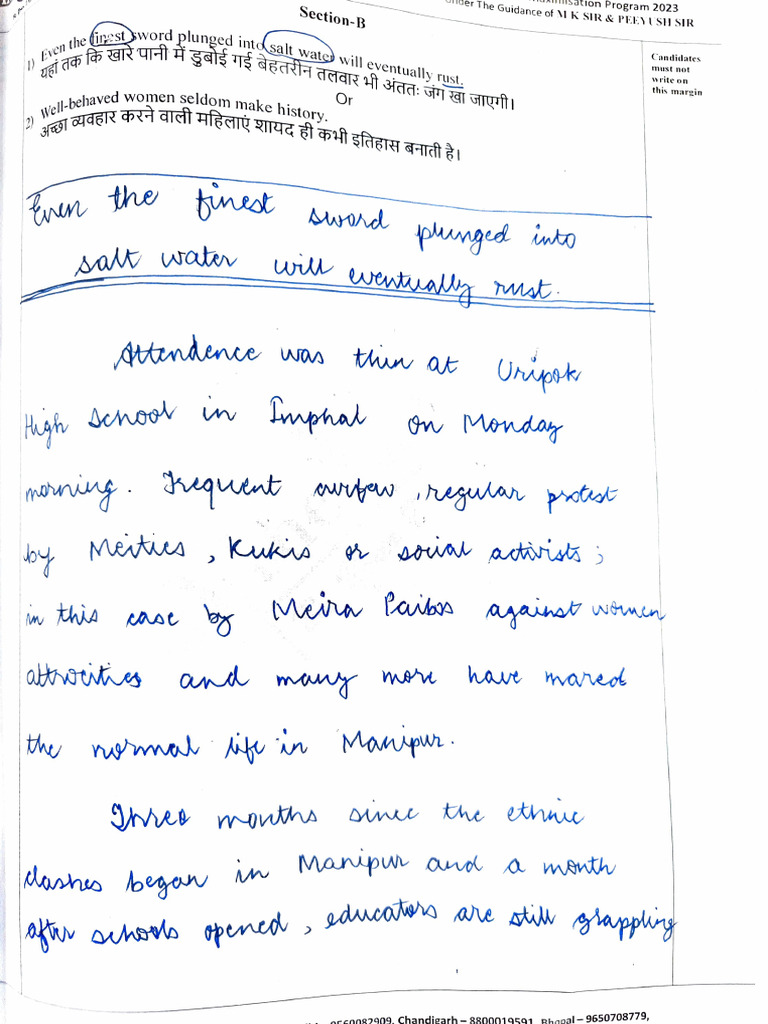 Maximisation Program 2023
Under The Guidance of M K SIR & PEEYUSH SIR
Section-B
1) Even the finest sword plunged into salt water will eventually rust.
यहां तक कि खारे पानी में डुबोई गई बेहतरीन तलवार भी अंततः जंग खा जाएगी।
Or
2) Well-behaved women seldom make history.
अच्छा व्यवहार करने वाली महिलाएं शायद ही कभी इतिहास बनाती है।
Candidates
must not
write on
this margin
Even the finest sword plunged into
salt water will eventually rust.
Attendence was thin at Uripok
High School in Imphal on Monday
morning. Frequent curfew, regular protest
by Meities, Kukis or social activists;
in this case by Meira Paibis against women
attrocities and many more have mared
the normal life in Manipur.
Three months since the ethnic
clashes began in Manipur and a month
after schools opened, educators are still grappling
9560082909, Chandigarh – 8800019591, Bhopal – 9650708779,